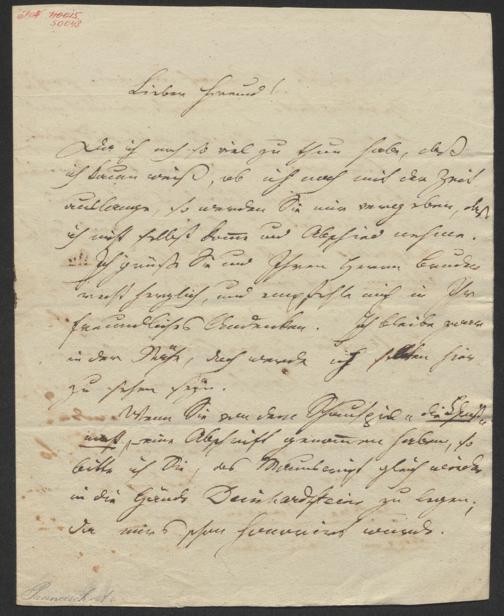 50048
Lieber Freund!
Da ich noch so viel zu thun habe, daß
ich kaum weiß, ob ich noch mit der Zeit
auslange, so werden Sie mir vergeben, daß
ich nicht selbst komme und Abschied nehme.
Ich grüße Sie und Ihren Herrn Bruder
recht herzlich, und empfehle mich in Ihr
freundliches Andenken. Ich bleibe zwar
in der Nähe, doch werde ich selten hier
zu sehen seyn.
Wenn Sie von dem Schauspiele „die
eine Abschrift genommen haben, so
bitte ich Sie, das Manuscript gleich wieder
in die Hände Deinhardsteins zu legen,
da mirs schon honorirt wurde.